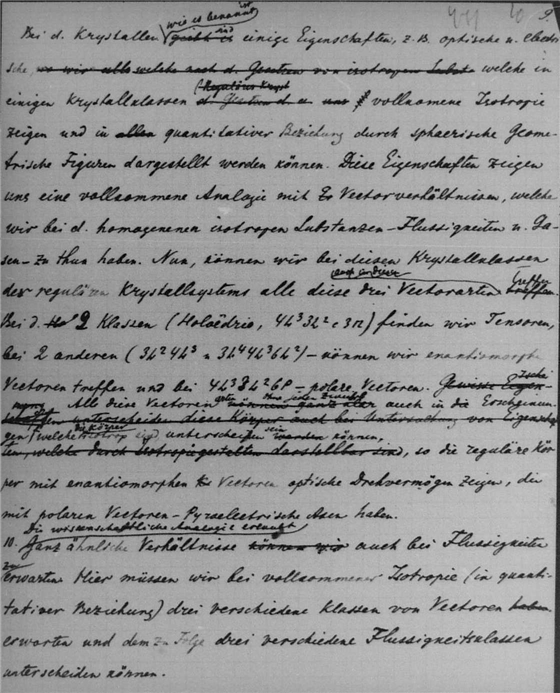 9.
wie es bekannt ist
Bei d. Krystallen giebt es sind einige Eigenschaften, z.B. optische u. electri-
sche, welche in
regulären Kryst
einigen Krystallklassen vollkomene Isotropie
zeigen und in allen quantitativer Beziehung durch sphaerische Geome-
trische Figuren dargestellt werden können. Diese Eigenschaften zeigen
uns eine vollkommene Analogie mit Vectorverhältnissen, welche
wir bei d. homogenen isotropen Substanzen-Flussigkeiten u. Ga-
sen- zu thun haben. Nun, können wir bei diesen Krystallklassen
des regulären Krystallsystems alle diese drei Vectorarten treffen
Bei d. 2 Klassen (Holoëdrie, 4L³3L²c3Π) finden wir Tensoren,
bei 2 anderen (3L²4L³ u 3L⁴4L³6L²)- können wir enantiomorphe
Vectoren treffen und bei 4L³3L²6P - polare Vectoren. Gewisse Eigen-
Alle diese Vectoren können ganz klar auch in die Erscheinun-
unterscheiden diese Körper auch bei Untersuchung von Eigenschaf
gen welche isotrop sind unterscheiden können,
ten, welche durch Isotropie darstellbar sind, so die reguläre Kör
per mit enantiomorphen Vectoren optische Drehvermögen zeigen, die
mit polaren Vectoren - Pyroelectrische Axen haben.
Die wissenschaftliche Analogie erlaugt
10. Ganz ähnliche Verhältnisse können wir auch bei Flussigkeiten
zu
erwarten Hier müssen wir bei vollkommener Isotropie (in quanti-
tativer Beziehung) drei verschiedene Klassen von Vectoren haben
erwarten und dem zu Folge drei verschiedene Flussigkeitsklassen
unterscheiden können.